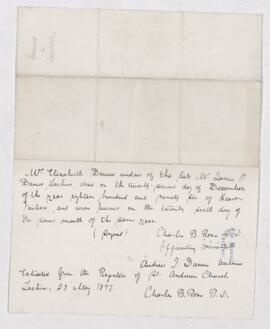 Mrs Elizabeth Dawes widow of the late Mr James P.
Dawes Lachine died on the twenty second day of December
of the year eighteen hundred and ninety six of Heart
Failure, and was buried on the twenty sixth day of
the same month of the same year.
(Signed) Charles B. Ross B.D.
Officiating minister
Andrew J. Dawes
Extracted from the Register of St. Andrews Church
Lachine, 28 May 1897.
Charles B. Ross B.D.